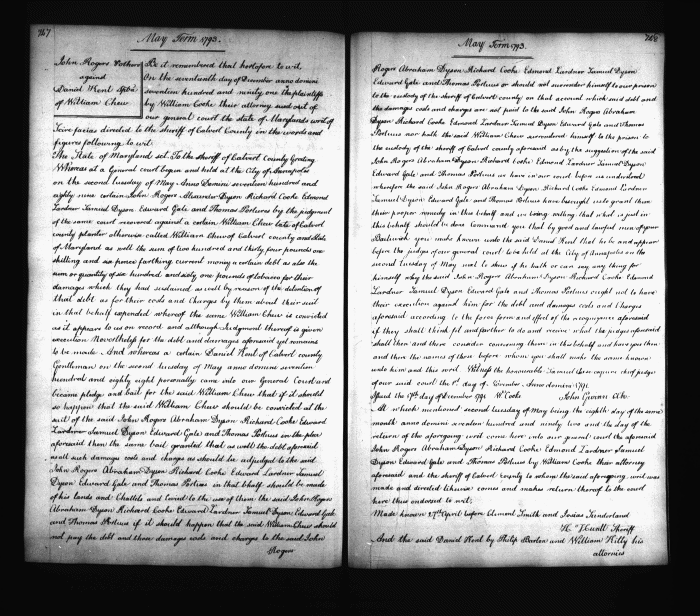 267
May Term 1793.
John Rogers & others
against
Daniel Kent Spl bail
of William Chew
Be it remembered that heretofore to wit
On the seventeenth day of December anno domini
seventeen hundred and ninety one the plaintiffs
by William Cooke their attorney sued out of
our general court the state of Maryland's writ of
Scire facias directed to the sheriff of Calvert County in the words and
figures following to wit
The State of Maryland sct. To the Sheriff of Calvert County Greeting
Whereas at a General court begun and held at the City of Annapolis
on the second tuesday of May Anno Domini seventeen hundred and
eighty nine certain John Rogers Abraham Dyson Richard Cooke Edmond
Lardner Samuel Dyson Edward Gale and Thomas Portius by the judgment
of the same court recovered against a certain William Chew late of Calvert
county planter otherwise called William Chew of Calvert county and State
of Maryland as well the sum of two hundred and thirty four pounds one
shilling and six pence farthing current money a certain debt as also the
sum or quantity of six hundred and sixty one pounds of tobacco for their
damages which they had sustained as well by reason of the detention of
that debt as for their costs and charges by them about their suit
in that behalf expended whereof the same William Chew is convicted
as it appears to us on record and although Judgment thereof is given
execution Nevertheless for the debt and damages aforesaid yet remains
to be made. And whereas a certain Daniel Kent of Calvert county
Gentleman on the second tuesday of May anno domini seventeen
hundred and eighty eight personally came into our General Court and
became pledge and bail for the said William Chew that if it should
so happen that the said William Chew should be convicted at the
suit of the said John Rogers Abraham Dyson Richard Cooke Edward
Lardner Samuel Dyson Edward Gale and Thomas Portius in the plea
aforesaid then the same bail granted that as well the debt aforesaid
as all such damages costs and charges as should be adjudged to the said
John Rogers Abraham Dyson Richard Cooke Edward Lardner Samuel
Dyson Edward Gale and Thomas Portius in that behalf should be made
of his lands and Chattels and levied to the use of them the said John Rogers
Abraham Dyson Richard Cooke Edward Lardner Samuel Dyson Edward Gale
and Thomas Portius if it should happen that the said William Chew should
not pay the debt and those damages costs and charges to the said John
Rogers
268
May Term 1793.
Rogers Abraham Dyson Richard Cooke Edmond Lardner Samuel Dyson
Edward Gale and Thomas Portius or should not surrender himself to our prison
to the custody of the sheriff of Calvert county on that account which said debt and
the damages costs and charges are not paid to the said John Rogers Abraham
Dyson Richard Cooke Edmond Lardner Samuel Dyson Edward Gale and Thomas
Portius nor hath the said William Chew surrendered himself to the prison to
the custody of the sheriff of Calvert county aforesaid as by the suggestion of the said
John Rogers Abraham Dyson Richard Cooke Edmond Lardner Samuel Dyson
Edward Gale and Thomas Portius we have in our court before us understood
wherefore the said John Rogers Abraham Dyson Richard Cooke Edmond Lardner
Samuel Dyson Edward Gale and Thomas Portius have besought us to grant them
their proper remedy in this behalf and we being willing that what is just in
this behalf should be done Command you that by good and lawful men of your
Bailiwick you make known unto the said Daniel Kent that he be and appear
before the judges of our general court to be held at the City of Annapolis on the
second tuesday of May next to shew if he hath or can say any thing for
himself why the said John Rogers Abraham Dyson Richard Cooke Edmond
Lardner Samuel Dyson Edward Gale and Thomas Portius ought not to have
their execution against him for the debt and damages costs and charges
aforesaid according to the force form and effect of the recognizance aforesaid
if they shall think fit and further to do and receive what the judges aforesaid
shall then and there consider concerning them in this behalf and have you then
and there the names of those before whom you shall make the same known
unto him and this writ. Witness the honourable Samuel chief judge
of our said court the 1st day of December Anno domini 1791.
Issued the 17th day of December 1791 Wm Cooke John Gwinn Clk.
At which mentioned second tuesday of May being the eighth day of the same
month anno domini seventeen hundred and ninety two and the day of the
return of the aforegoing writ come here into our general court the aforesaid
John Rogers Abraham Dyson Richard Cooke Edmond Lardner Samuel
Dyson Edward Gale and Thomas Portius by William Cooke their attorney
aforesaid and the sheriff of Calvert County to whom the said aforegoing writ was
made and directed likewise comes and makes return thereof to the court
here thus endorsed to wit,
Made known 17th April before Clement Smith and Josias Sunderland
Sheriff
And the said Daniel Kent by Philip Barton and William Kilty his
attornies